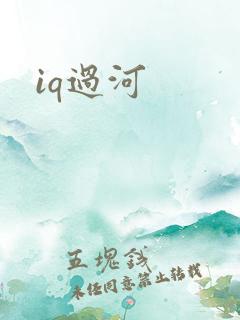 iq過河
五塊錢
未經同意禁止轉載